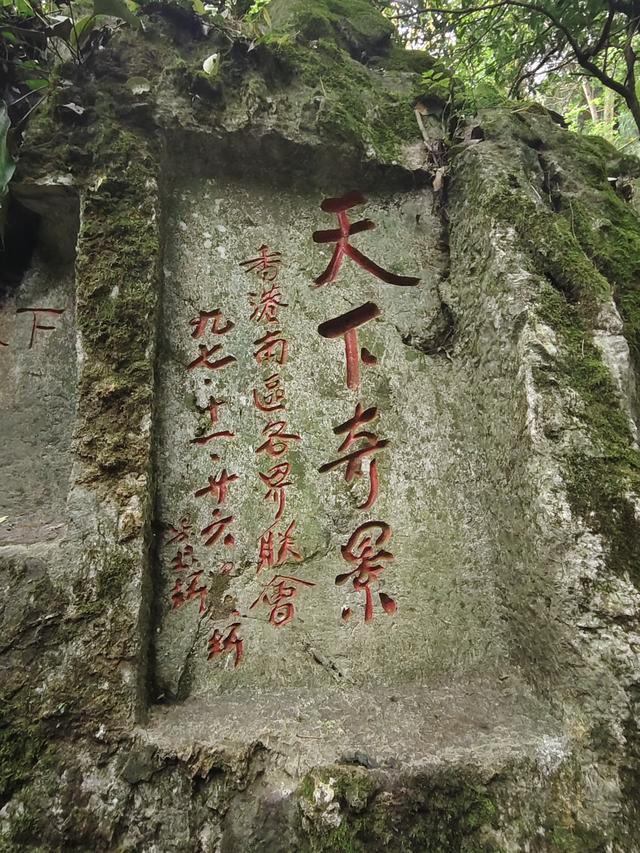 天下奇景
香港南區各界联會
九七·十一·廿六
下